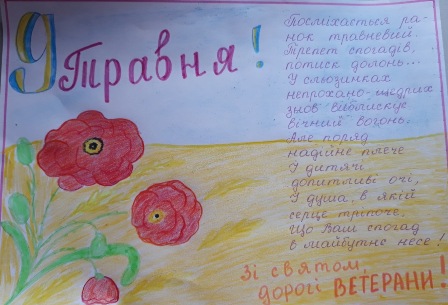 9 Травня!
Посміхається ра-
нок травневий.
Трепет спогадів,
потиск долонь...
У сльозинках
непрохано-щедрих
знов виблискує
вічний вогонь.
Але поряд
надійне плече
І дитячі
допитливі очі,
І душа, в якій
серце тріпоче,
Що Ваш спогад
в майбутнє несе!
Зі святом,
дорогі ВЕТЕРАНИ!